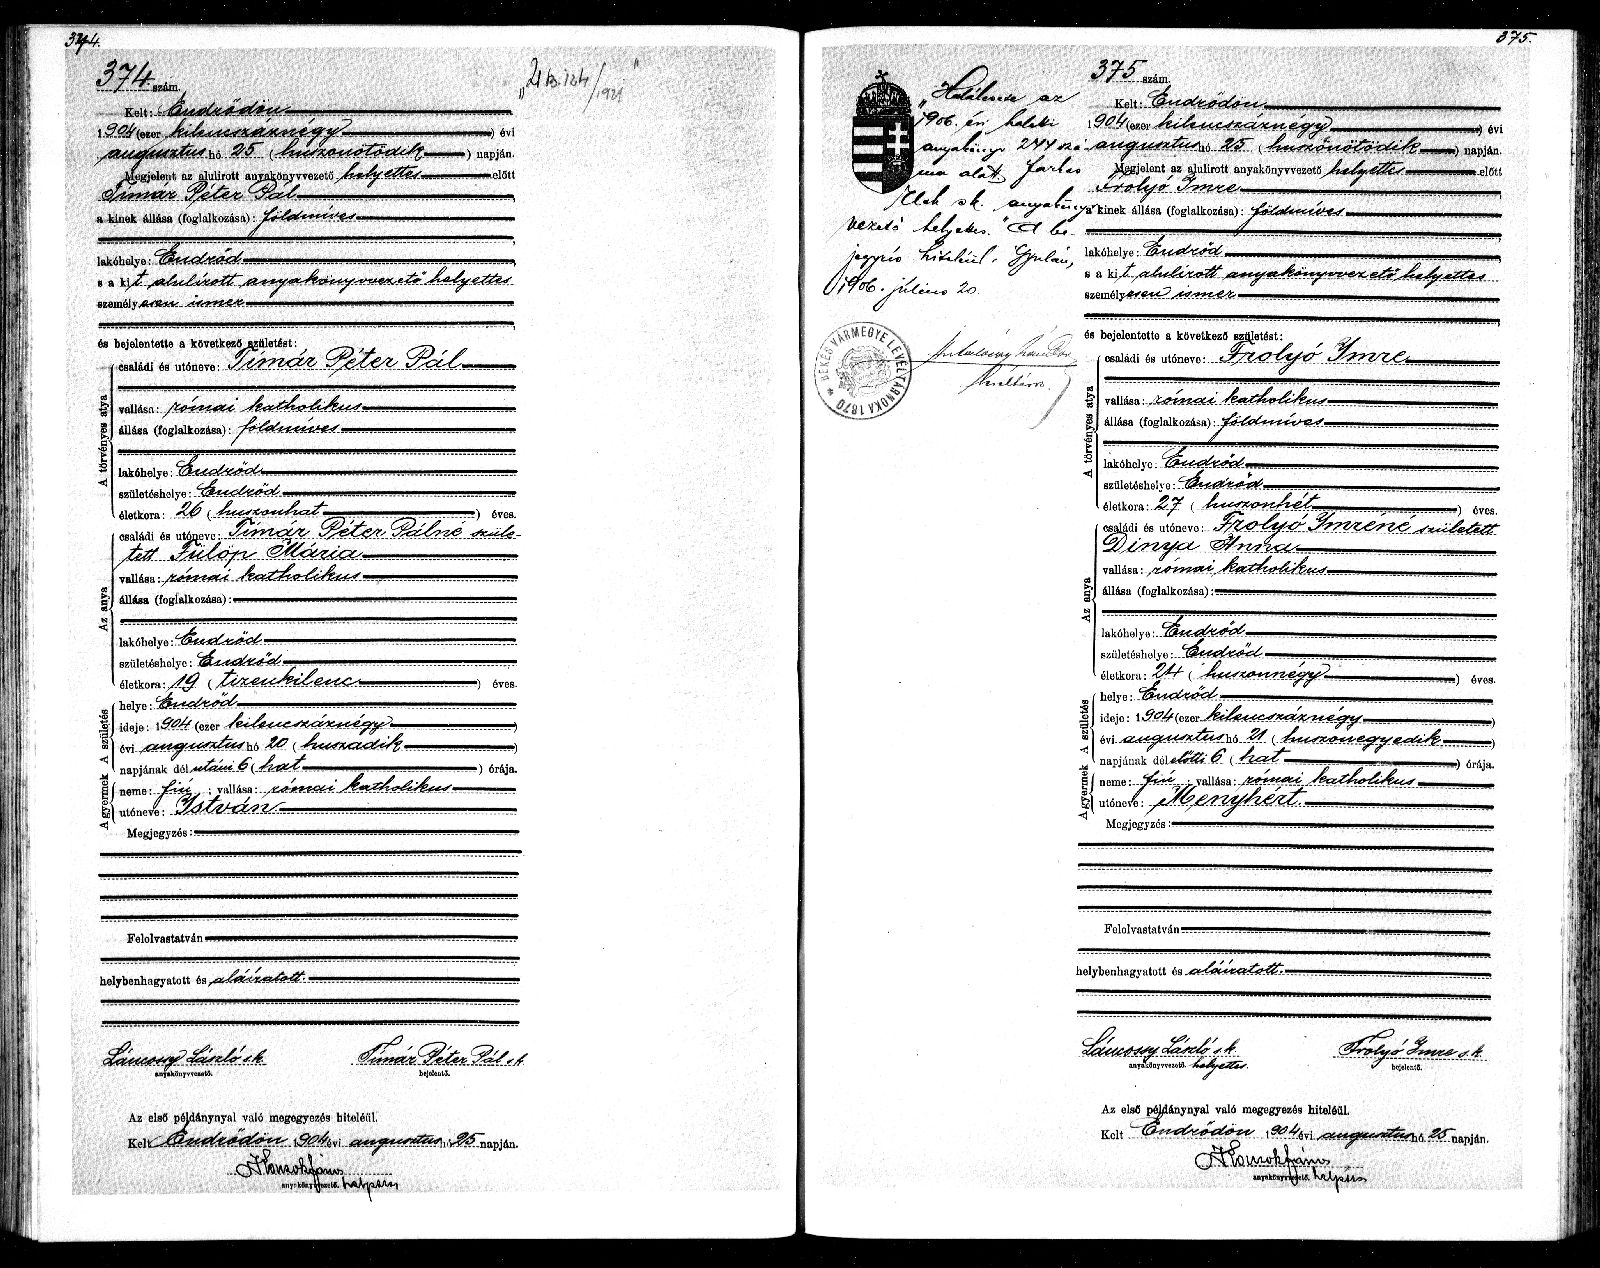 374.
374. szám.
"21 B. 124/1921"
Kelt: Endrődön
1904 (ezer kilencszáznégy) évi
augusztus hó 25 (huszonötödik) napján.
Megjelent az alulirott anyakönyvvezető helyettes előtt
Tímár Péter Pál
a kinek állása (foglalkozása): földmíves
lakóhelye: Endrőd
s a kit alulírott anyakönyvvezető helyettes
személyesen ismer
és bejelentette a következő születést:
A törvényes atya
családi és utóneve: Tímár Péter Pál
vallása: római katholikus
állása (foglalkozása): földmíves
lakóhelye: Endrőd
születéshelye: Endrőd
életkora: 26 (huszonhat) éves.
Az anya
családi és utóneve: Tímár Péter Pálné szüle-
tett Fülöp Mária
vallása: római katholikus
állása (foglalkozása):
lakóhelye: Endrőd
születéshelye: Endrőd
életkora: 19 (tizenkilenc) éves.
A gyermek A születés
helye: Endrőd
ideje: 1904 (ezer kilencszáznégy)
évi augusztus hó 20 (huszadik)
napjának délutáni 6 (hat) órája.
neme: fiú; vallása: római katholikus
utóneve: István
Megjegyzés:
Felolvastatván
helybenhagyatott és aláíratott.
László s.k. Tímár Péter Pál s.k.
anyakönyvvezető. bejelentő.
Az első példánynyal való megegyezés hiteléül.
Kelt Endrődön 1904 évi augusztus hó 25 napján.
anyakönyvvezető.
375.
"Halálozása az
1906. évi halotti
anyakönyv 244 szá-
ma alatt. Farkas
Elek sk. anyakönyv
vezető helyettes." A be-
jegyzés hiteléül. Gyulán,
1906. július 20.
BÉKÉS VÁRMEGYE LEVÉLTÁRNOKA 1870
375 szám.
Kelt: Endrődön
1904 (ezer kilencszáznégy) évi
augusztus hó 25 (huszonötödik) napján.
Megjelent az alulirott anyakönyvvezető helyettes előtt
Frolyó Imre
a kinek állása (foglalkozása): földmíves
lakóhelye: Endrőd
s a kit alulírott anyakönyvvezető helyettes
személyesen ismer
és bejelentette a következő születést:
A törvényes atya
családi és utóneve: Frolyó Imre
vallása: római katholikus
állása (foglalkozása): földmíves
lakóhelye: Endrőd
születéshelye: Endrőd
életkora: 27 (huszonhét) éves.
Az anya
családi és utóneve: Frolyó Imréné született
Dinya Anna
vallása: római katholikus
állása (foglalkozása):
lakóhelye: Endrőd
születéshelye: Endrőd
életkora: 24 (huszonnégy) éves.
A gyermek A születés
helye: Endrőd
ideje: 1904 (ezer kilencszáznégy)
évi augusztus hó 21 (huszonegyedik)
napjának délelőtti 6 (hat) órája.
neme: fiú; vallása: római katholikus
utóneve: Menyhért.
Megjegyzés:
Felolvastatván
helybenhagyatott és aláíratott.
László s.k. Frolyó Imre s.k.
anyakönyvvezető. helyettes. bejelentő.
Az első példánynyal való megegyezés hiteléül.
Kelt Endrődön 1904 évi augusztus hó 25 napján.
anyakönyvvezető.